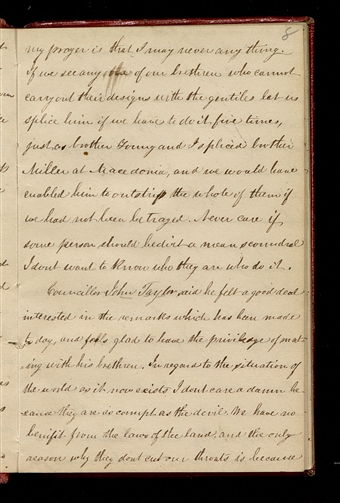 8
my prayer is that I may never any thing.
If we see any one of our brethren who cannot
carry out their designs with the gentiles let us
splice him if we have to do it five times,
just as brother Young and I spliced brother
Miller at Macedonia, and we would have
enabled him to outstrip the whole of them if
we had not been betrayed. Never care if
some person should be a mean scoundrel
I dont want to know who they are who do it.
Councillor John Taylor said he felt a good deal
interested in the remarks which has been made
to day, and feels glad to have the priviledge of meet-
ing with his brethren. In regard to the situation of
the world as it now exists I dont care a damn be
cause they are as corrupt as the devil. We have no
benifit from the laws of the land, and the only
reason why they dont cut our throats is because